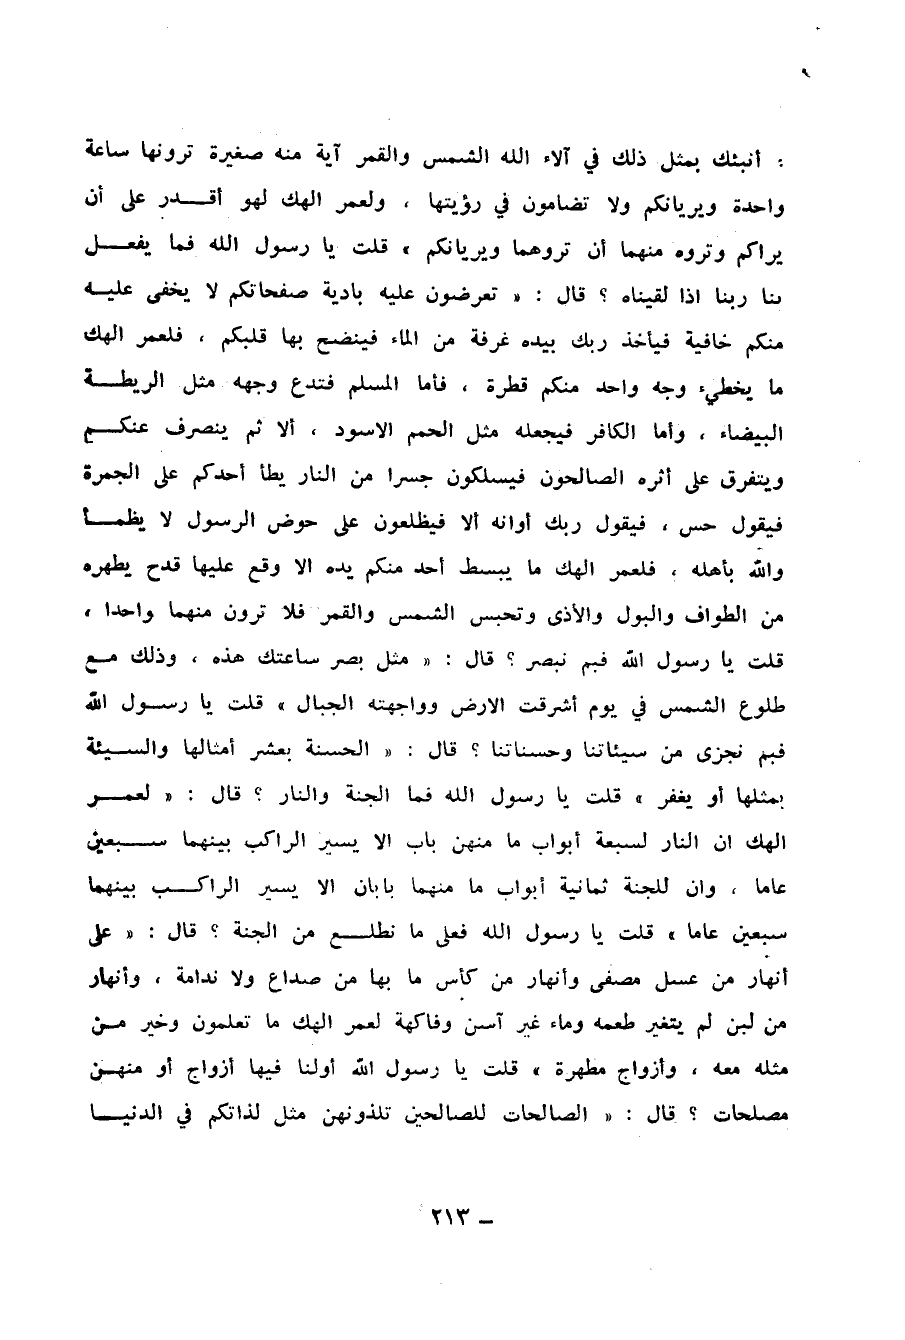 : أنبئك بمثل ذلك في آلاء الله الشمس والقمر آية منه صغيرة ترونها ساعة
واحدة ويريانكم ولا تضامون في رؤيتها ، ولعمر الهك لهو أقدر على أن
يراكم وتروه منهما أن تروهما ويريانكم » قلت يا رسول الله فما يفعل
بنا ربنا اذا لقيناه ؟ قال : « تعرضون عليه بادية صفحاتكم لا يخفى عليه
منكم خافية فيأخذ ربك بيده غرفة من الماء فينضح بها قلبكم ، فلعمر الهك
ما يخطيء وجه واحد منكم قطرة ، فأما المسلم فتدع وجهه مثل الريطة
البيضاء ، وأما الكافر فيجعله مثل الحمم الاسود ، ألا ثم ينصرف عنكم
ويتفرق على أثره الصالحون فيسلكون جسرا من النار يطأ أحدكم على الجمرة
فيقول حس ، فيقول ربك أوانه ألا فيظلعون على حوض الرسول لا يظمأ
والله بأهله ، فلعمر الهك ما يبسط أحد منكم يده الا وقع عليها قدح يطهره
من الطواف والبول والأذى وتحبس الشمس والقمر فلا ترون منهما واحدا ،
قلت يا رسول الله فبم نبصر ؟ قال : « مثل بصر ساعتك هذه ، وذلك مع
طلوع الشمس في يوم أشرقت الارض وواجهته الجبال » قلت يا رسول الله
فبم نجزى من سيئاتنا وحسناتنا ؟ قال : « الحسنة بعشر أمثالها والسيئة
بمثلها أو يغفر » قلت يا رسول الله فما الجنة والنار ؟ قال : « لعمر
الهك ان النار لسبعة أبواب ما منهن باب الا يسير الراكب بينهما سبعين
عاما ، وان للجنة ثمانية أبواب ما منهما بابان الا يسير الراكب بينهما
سبعين عاما » قلت يا رسول الله فعلى ما نطلع من الجنة ؟ قال : « على
أنهار من عسل مصفى وأنهار من كأس ما بها من صداع ولا ندامة ، وأنهار
من لبن لم يتغير طعمه وماء غير آسن وفاكهة لعمر الهك ما تعلمون وخير من
مثله معه ، وأزواج مطهرة » قلت يا رسول الله أولنا فيها أزواج أو منهن
مصلحات ؟ قال : « الصالحات للصالحين تلذونهن مثل لذاتكم في الدنيا
ـ ٢١٣